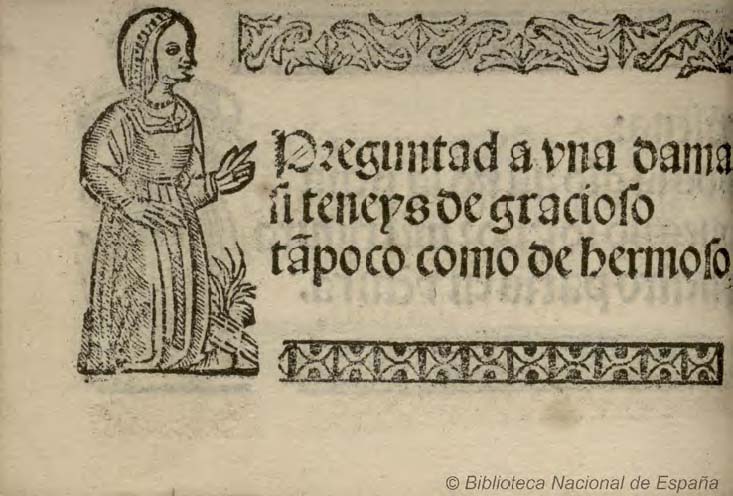 Preguntad a vna dama
si teneys de gracioso
tãpoco como de hermoso
© Biblioteca Nacional de España